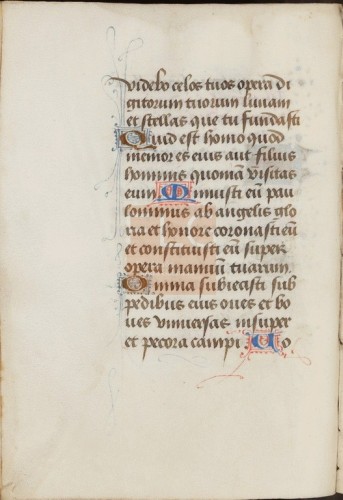 videbo celos tuos opera di
gitorum tuorum lunam
et stellas que tu fundasti
Quid est homo quod
memor es eius aut filius
hominis quoniam visitas
eum Minuisti eum pau
lominus ab angelis glo
ria et honore coronasti eū
et constituisti eū super
opera manuum tuarum.
Omnia subiecasti sub
pedibus eius oues et bo
ues vniuersas insuper
et pecora campi Uo